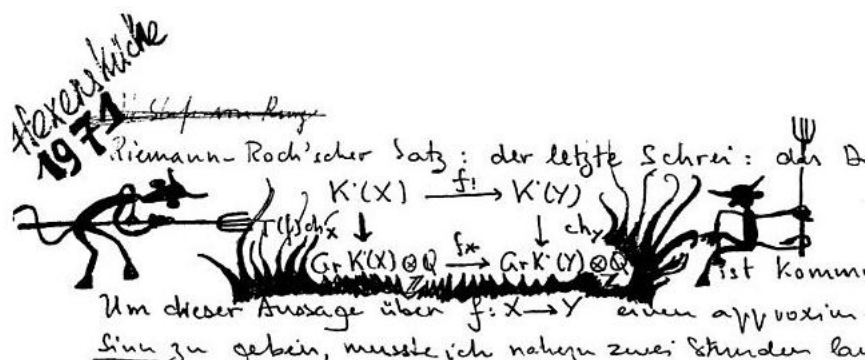 Hexenküche
1971
Riemann-Roch'scher Satz: der letzte Schrei: das
K˙(X) f! K˙(Y)
T(f)chx chy
Gr K˙(X) ⊗ Q f* Gr K˙(Y) ⊗ Q
Z Z
ist kommu
Um dieser Aussage über f: X → Y einen approxim
Sinn zu geben, musste ich nahezu zwei Stunden la